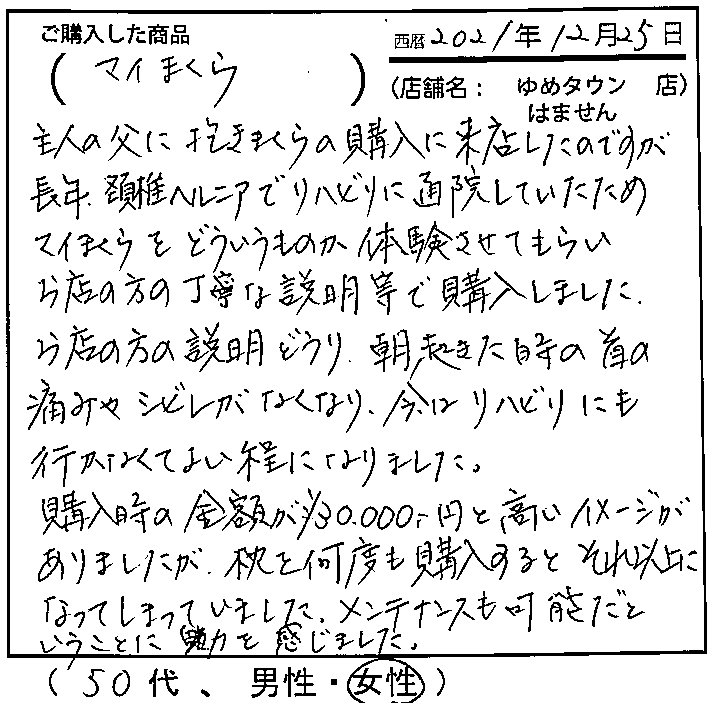 ご購入した商品
西暦2021年12月25日
(マイまくら)
(店舗名： ゆめタウン 店)
はません
主人の父に抱きまくらの購入に来店したのですが
長年、頚椎ヘルニアでリハビリに通院していたため
マイまくらをどういうものか体験させてもらい
お店の方の丁寧な説明等で購入しました。
お店の方の説明どうり、朝起きた時の首の
痛みやシビレがなくなり、今はリハビリにも
行かなくてよい程になりました。
購入時の金額が¥30.000,-円と高いイメージが
ありましたが、枕を何度も購入するとそれ以上に
なってしまっていました。メンテナンスも可能だと
いうことに魅力を感じました。
(50代、男性・女性)